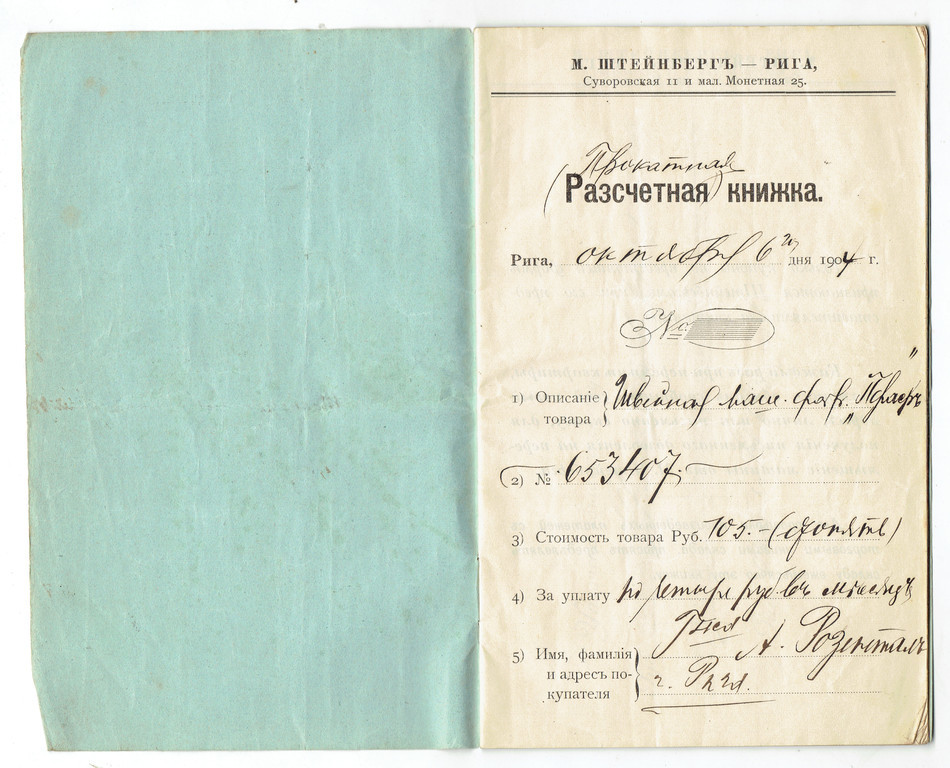 М. ШТЕЙНБЕРГЪ — РИГА,
Суворовская 11 и мал. Монетная 25.
Прокатная
(Разсчетная) книжка.
Рига, октября 6 дня 1904 г.
№
1) Описаніе товара } Швейная маш. фабр.
2) № 653407.
3) Стоимость товара Руб. 105.- (сто пять)
4) За уплату по четыре руб въ мѣсяцъ
5) Имя, фамилія и адресъ покупателя } А. Розенталь
г. Рига.